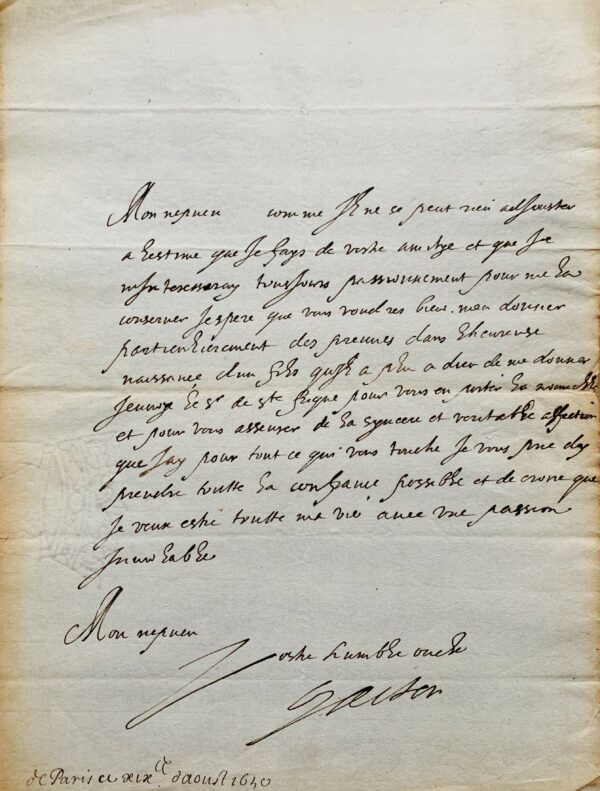 Mon nepueu comme Il ne se peut rien adjouster
a lestime que Je fays de vostre amitye et que Je
mInteresseray tousJours passionnement pour me la
conserver Jespere que vous voudres bien men donner
particulierement des preuues dans lheureuse
naissance dun fils quil a pleu a dieu de me donner
Jenuoye le Sr de ste frique pour vous en porter la nouuelle
et pour vous asseurer de la syncere et veritable affection
que Jay pour tout ce qui vous touche Je vous prie dy
prendre toutte la confiance possible et de croire que
Je veux estre toutte ma vie auec vne passion
Inuiolable
Mon nepueu
Vostre humble oncle
Gaston
de Paris ce xixe daoust 1650